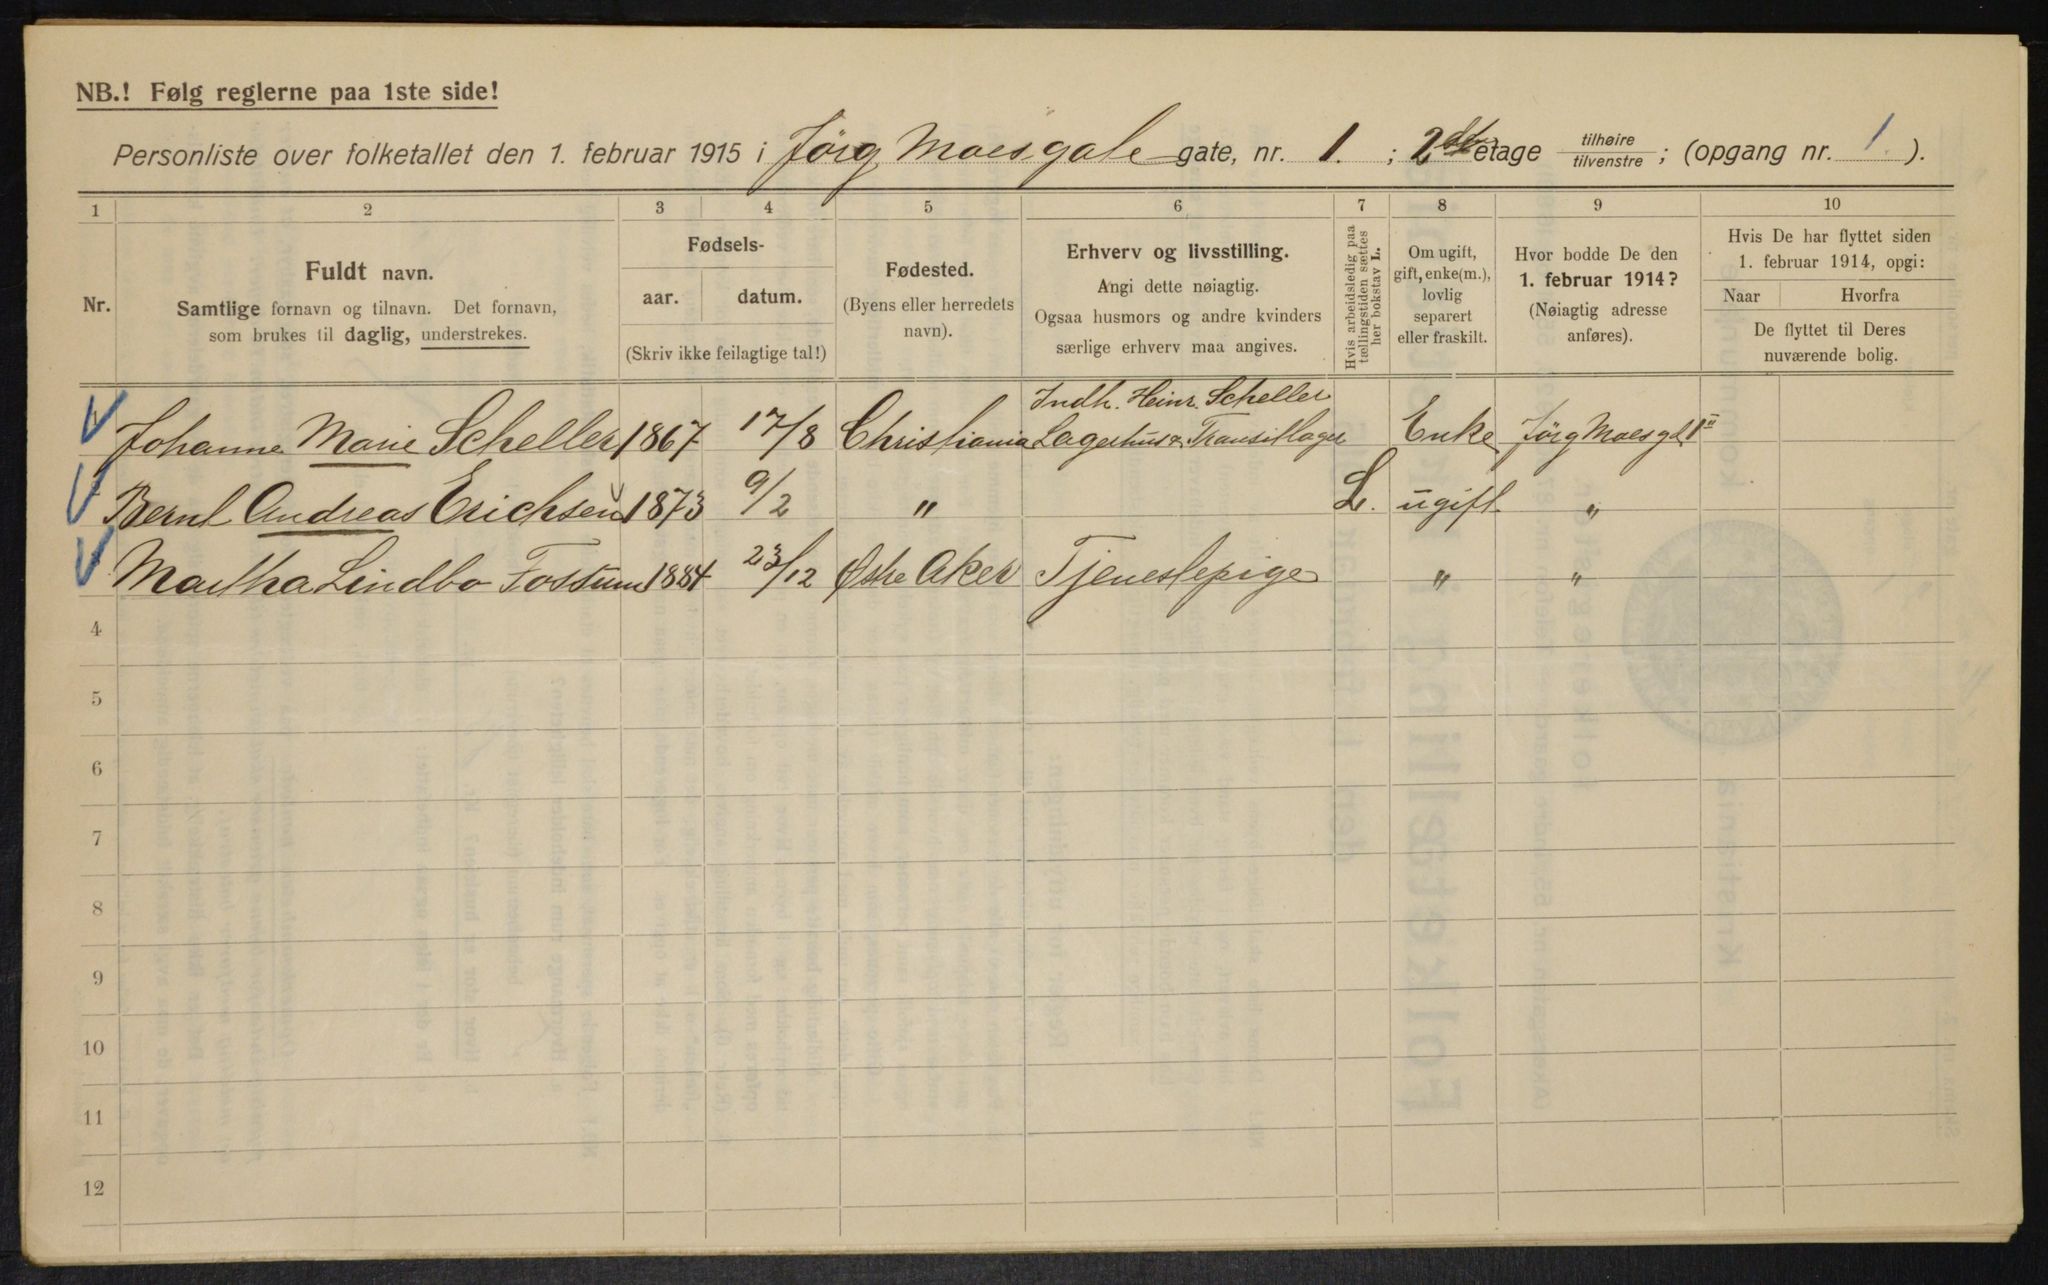 NB.! Følg reglerne paa 1ste side!
Personliste over folketallet den 1. februar 1915 i Jörg Moesgate gate, nr. 1. ; 2den etage tilhøire/tilvenstre ; (opgang nr. 1. ).
1 2 3 4 5 6 7 8 9 10
Nr.
Fuldt navn.
Samtlige fornavn og tilnavn. Det fornavn,
som brukes til daglig, understrekes.
Fødsels-
aar. datum.
(Skriv ikke feilagtige tal!)
Fødested.
(Byens eller herredets
navn).
Erhverv og livsstilling.
Angi dette nøiagtig.
Ogsaa husmors og andre kvinders
særlige erhverv maa angives.
Hvis arbeidsledig paa
tællingstiden sættes
her bokstav L.
Om ugift,
gift, enke(m.),
lovlig
separert
eller fraskilt.
Hvor bodde De den
1. februar 1914?
(Nøiagtig adresse
anføres).
Hvis De har flyttet siden
1. februar 1914, opgi:
Naar Hvorfra
De flyttet til Deres
nuværende bolig.
Indh. Heinr. Scheller
Johanne Marie Scheller 1867 17/8 Christiania Lagerhus & Transitlager Enke Jörg Moesgt 1 II
Bernt Andreas Erichsen 1873 9/2 " L. ugift "
Martha Lindbo Fossum 1884 23/12 Østre Aker Tjenestepige " "
4
5
6
7
8
9
10
11
12